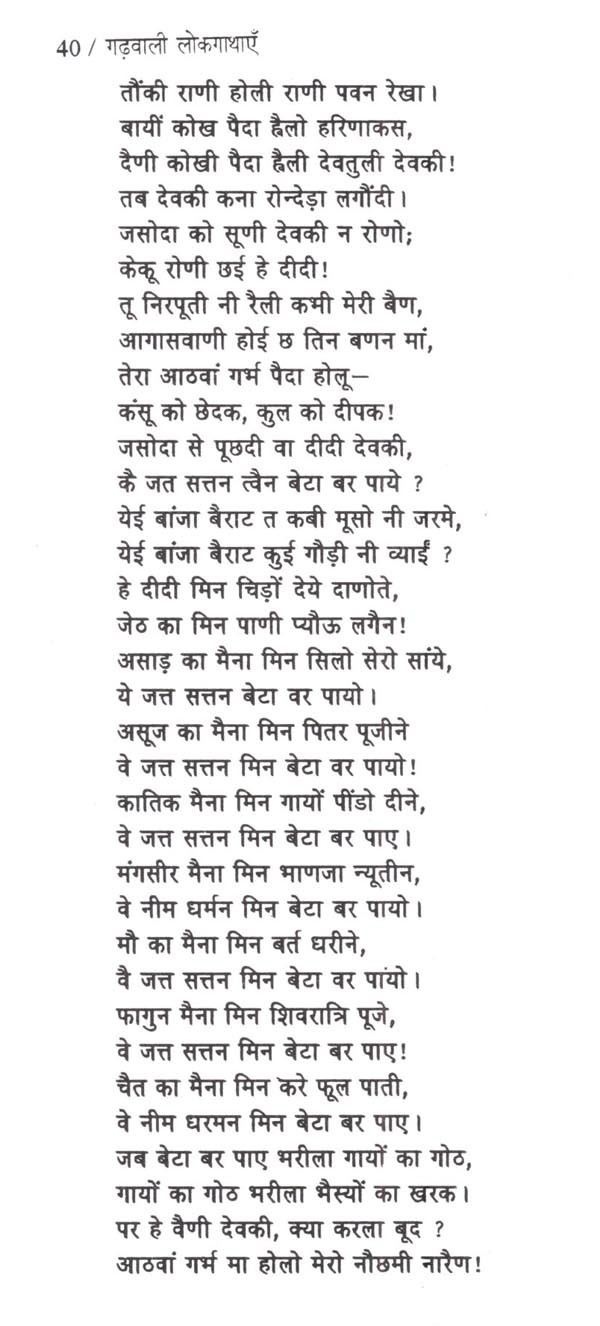 40 / गढ़वाली लोकगाथाएँ
तौंकी राणी होली राणी पवन रेखा।
बायीं कोख पैदा ह्वैलो हरिणाकस,
दैणी कोखी पैदा ह्वैली देवतुली देवकी!
तब देवकी कना रोन्देड़ा लगौंदी।
जसोदा को सूणी देवकी न रोणो;
केकू रोणी छई हे दीदी!
तू निरपूती नी रैली कभी मेरी बैण,
आगासवाणी होई छ तिन बणन मां,
तेरा आठवां गर्भ पैदा होलू—
कंसू को छेदक, कुल को दीपक!
जसोदा से पूछदी वा दीदी देवकी,
कै जत सत्तन त्वैन बेटा बर पाये ?
येई बांजा बैराट त कबी मूसो नी जरमे,
येई बांजा बैराट कुई गौड़ी नी व्याईं ?
हे दीदी मिन चिड़ों देये दाणोते,
जेठ का मिन पाणी प्यौऊ लगैन!
असाड़ का मैना मिन सिलो सेरो सांये,
ये जत्त सत्तन बेटा वर पायो।
असूज का मैना मिन पितर पूजीने
वे जत्त सत्तन मिन बेटा वर पायो!
कातिक मैना मिन गायों पींडो दीने,
वे जत्त सत्तन मिन बेटा बर पाए।
मंगसीर मैना मिन भाणजा न्यूतीन,
वे नीम धर्मन मिन बेटा बर पायो।
मौ का मैना मिन बर्त धरीने,
वै जत्त सत्तन मिन बेटा वर पायो।
फागुन मैना मिन शिवरात्रि पूजे,
वे जत्त सत्तन मिन बेटा बर पाए!
चैत का मैना मिन करे फूल पाती,
वे नीम धरमन मिन बेटा बर पाए।
जब बेटा बर पाए भरीला गायों का गोठ,
गायों का गोठ भरीला भैस्यों का खरक।
पर हे वैणी देवकी, क्या करला बूद ?
आठवां गर्भ मा होलो मेरो नौछमी नारैण!